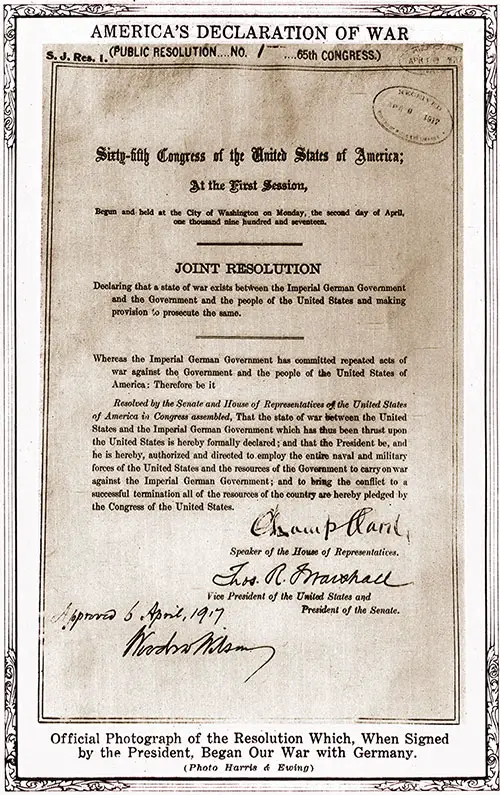 AMERICA'S DECLARATION OF WAR
S. J. Res. 1. (PUBLIC RESOLUTION....NO. 1 ....65th CONGRESS.)
RECEIVED
APR 6 1917
Sixty-fifth Congress of the United States of America;
At the First Session,
Begun and held at the City of Washington on Monday, the second day of April,
one thousand nine hundred and seventeen.
JOINT RESOLUTION
Declaring that a state of war exists between the Imperial German Government
and the Government and the people of the United States and making
provision to prosecute the same.
Whereas the Imperial German Government has committed repeated acts of
war against the Government and the people of the United States of
America: Therefore be it
Resolved by the Senate and House of Representatives of the United States
of America in Congress assembled, That the state of war between the United
States and the Imperial German Government which has thus been thrust upon
the United States is hereby formally declared; and that the President be, and
he is hereby, authorized and directed to employ the entire naval and military
forces of the United States and the resources of the Government to carry on war
against the Imperial German Government; and to bring the conflict to a
successful termination all of the resources of the country are hereby pledged by
the Congress of the United States.
Champ Clark
Speaker of the House of Representatives.
Thos. R. Marshall
Vice President of the United States and
President of the Senate.
Approved 6 April, 1917
Woodrow Wilson
Official Photograph of the Resolution Which, When Signed
by the President, Began Our War with Germany.
(Photo Harris & Ewing)